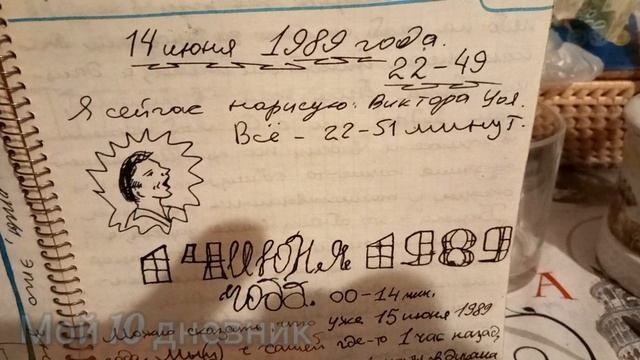 14 июня 1989 года.
22-49
Я сейчас нарисую: Виктора Цоя.
Всё - 22-51 минут.
14 июня 1989
года. 00-14 мин.
Можно сказать, что уже 15 июня 1989
с Сашей где-то 1 час назад,
Мой 10 дневник